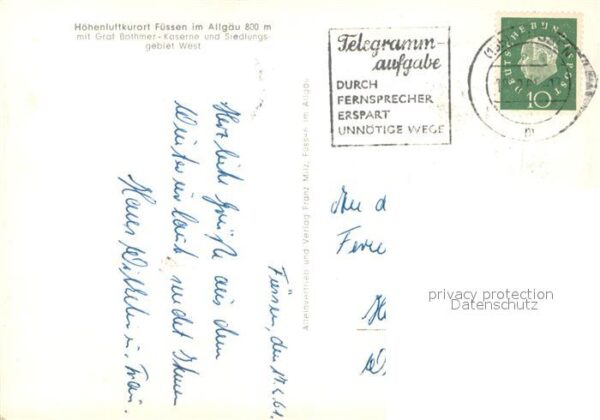 Höhenluftkurort Füssen im Allgäu 800 m
mit Graf Bothmer-Kaserne und Siedlungs-
gebiet West
Telegramm-
aufgabe
DURCH
FERNSPRECHER
ERSPART
UNNÖTIGE WEGE
DEUTSCHE BUNDESPOST
10
Alleinvertrieb und Verlag Franz Milz, Füssen im Allgäu
Füssen, den
Herzliche Grüße aus dem
Winterurlaub sendet Ihnen
Hans Wilhelm u. Frau.
privacy protection
Datenschutz